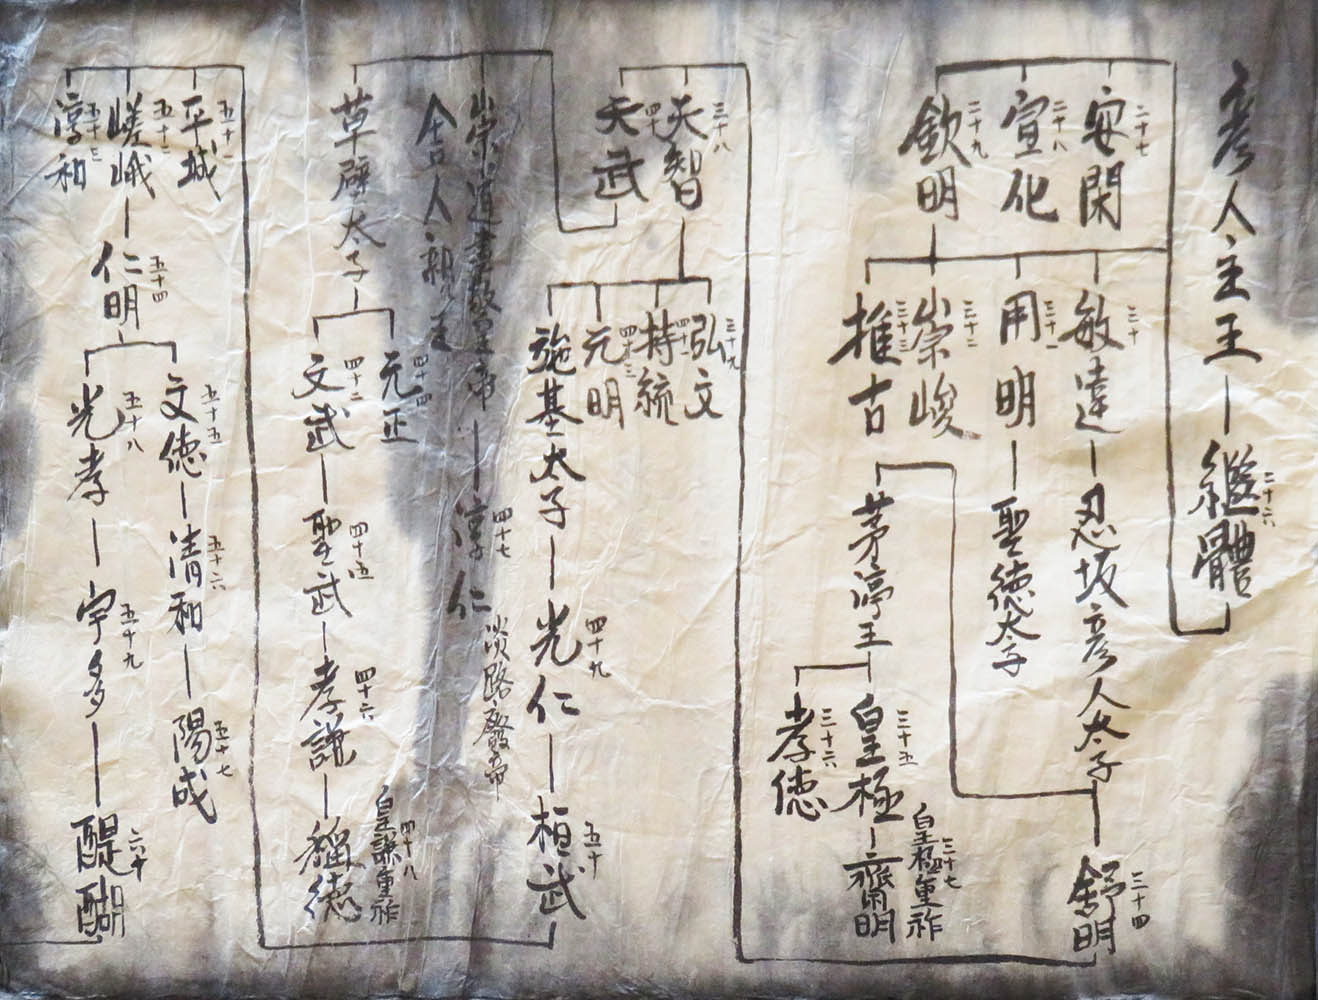 彦人主王
二十六
繼體
二十七
安閑
二十八
宣化
二十九
欽明
三十
敏達
忍坂彦人太子
三十四
舒明
三十一
用明
聖徳太子
三十二
崇峻
三十三
推古
茅渟王
三十五
皇極
三十七
皇極重祚
齋明
三十六
孝徳
三十八
天智
四十
天武
三十九
弘文
四十一
持統
四十三
元明
施基太子
四十九
光仁
五十
桓武
崇道盡敬皇帝
舍人親王
四十七
淳仁
淡路廢帝
草壁太子
四十四
元正
四十二
文武
四十五
聖武
四十六
孝謙
四十八
皇謙重祚
稱徳
五十一
平城
五十二
嵯峨
五十三
淳和
五十四
仁明
五十五
文徳
五十六
清和
五十七
陽成
五十八
光孝
五十九
宇多
六十
醍醐